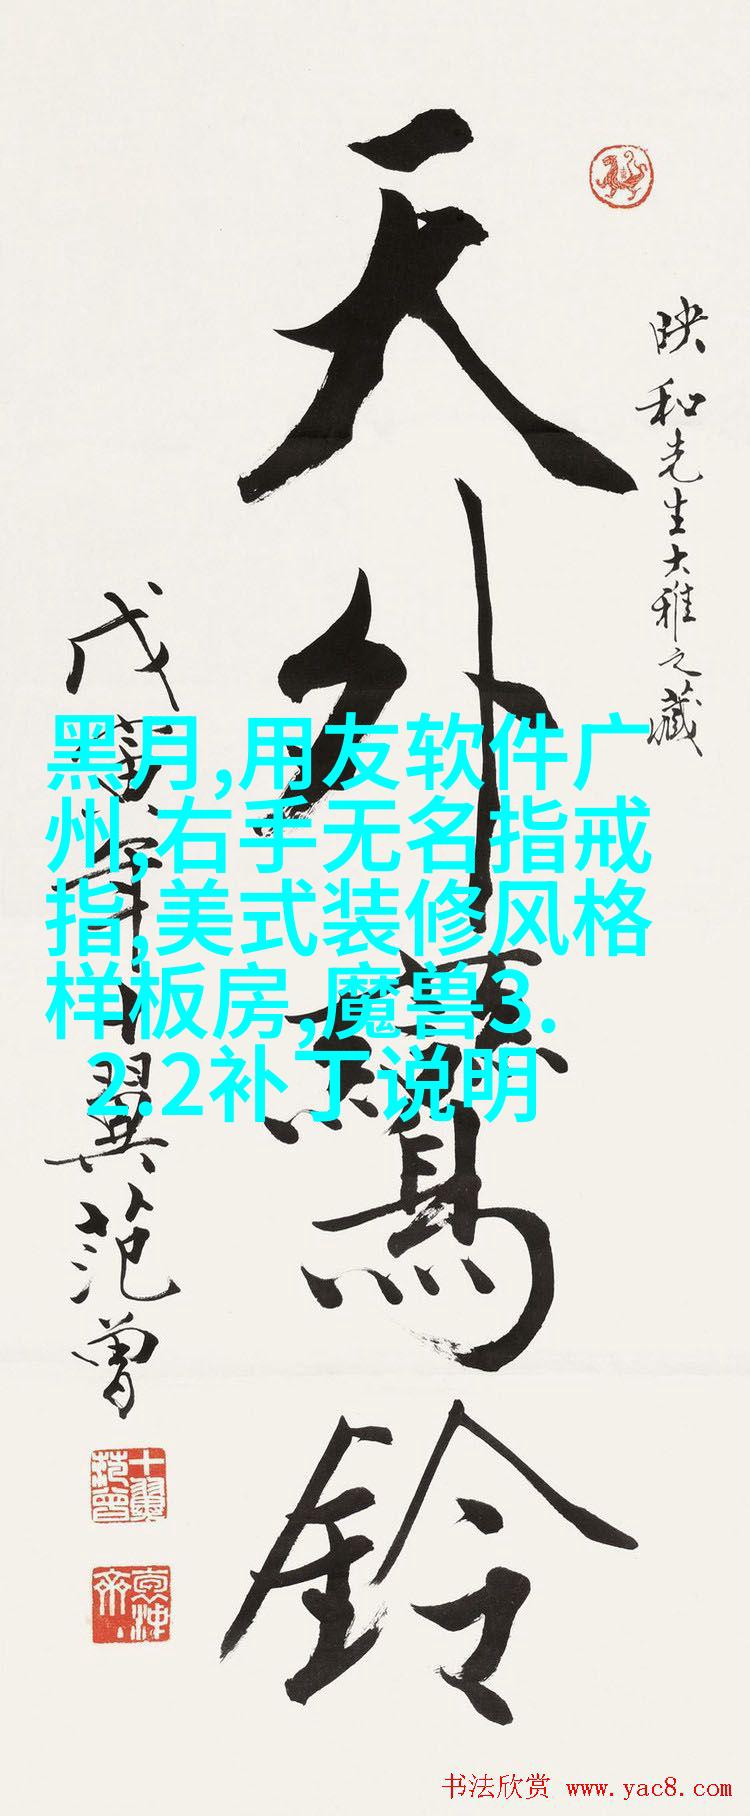 天外鸞鈴
映和先生大雅之藏
戊寅年十翼范曾
黑月,用友软件广
州,右手无名指戒
指,美式装修风格
样板房,魔兽3.
2.2补丁说明
十翼范曾
书法欣赏 www.yac8.com